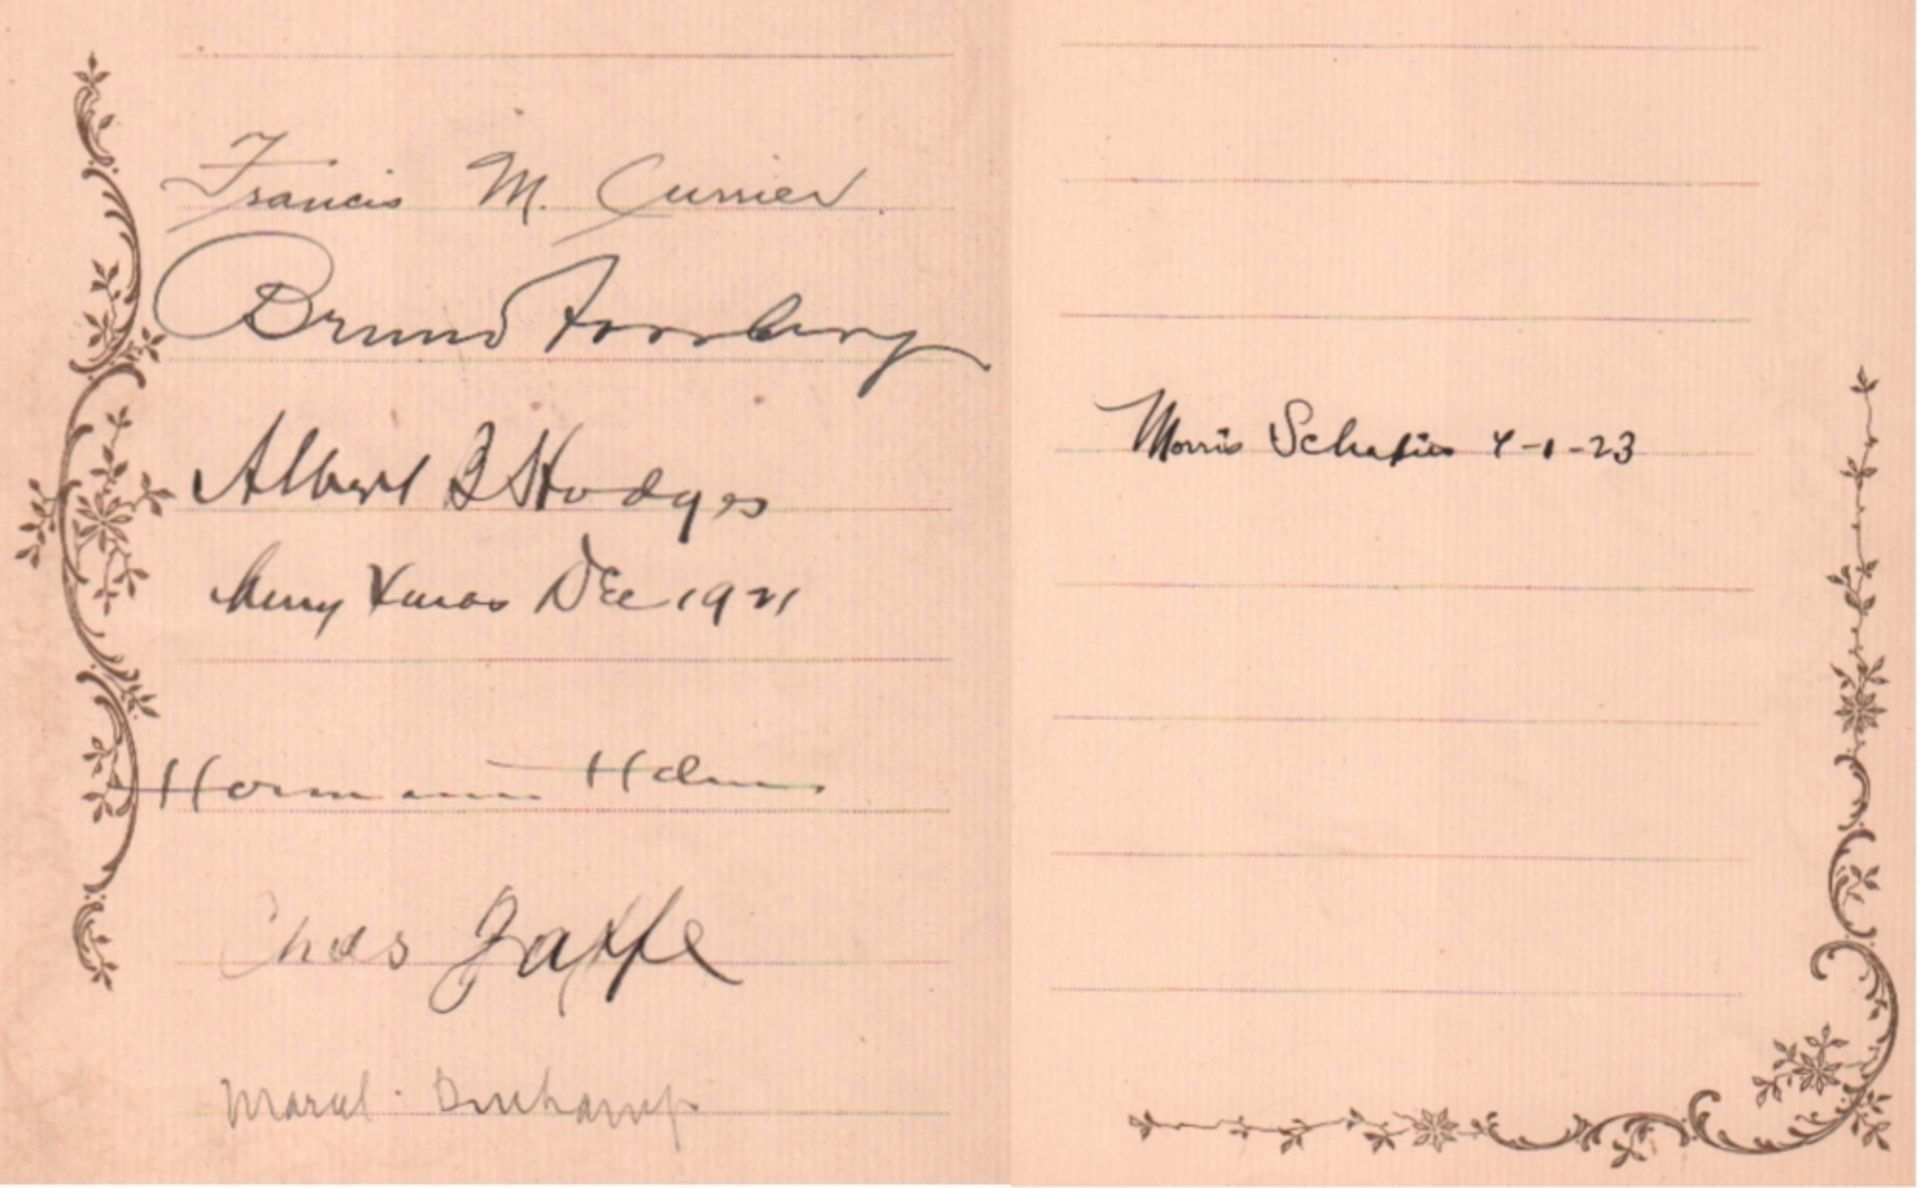 Francis M. Currier.
Bruno Forsberg
Albert B Hodges
Merry Xmas Dec 1921
Hermann Helms
Chas Jaffe
Marcel Duchamp
Morris Schapiro 4-1-23